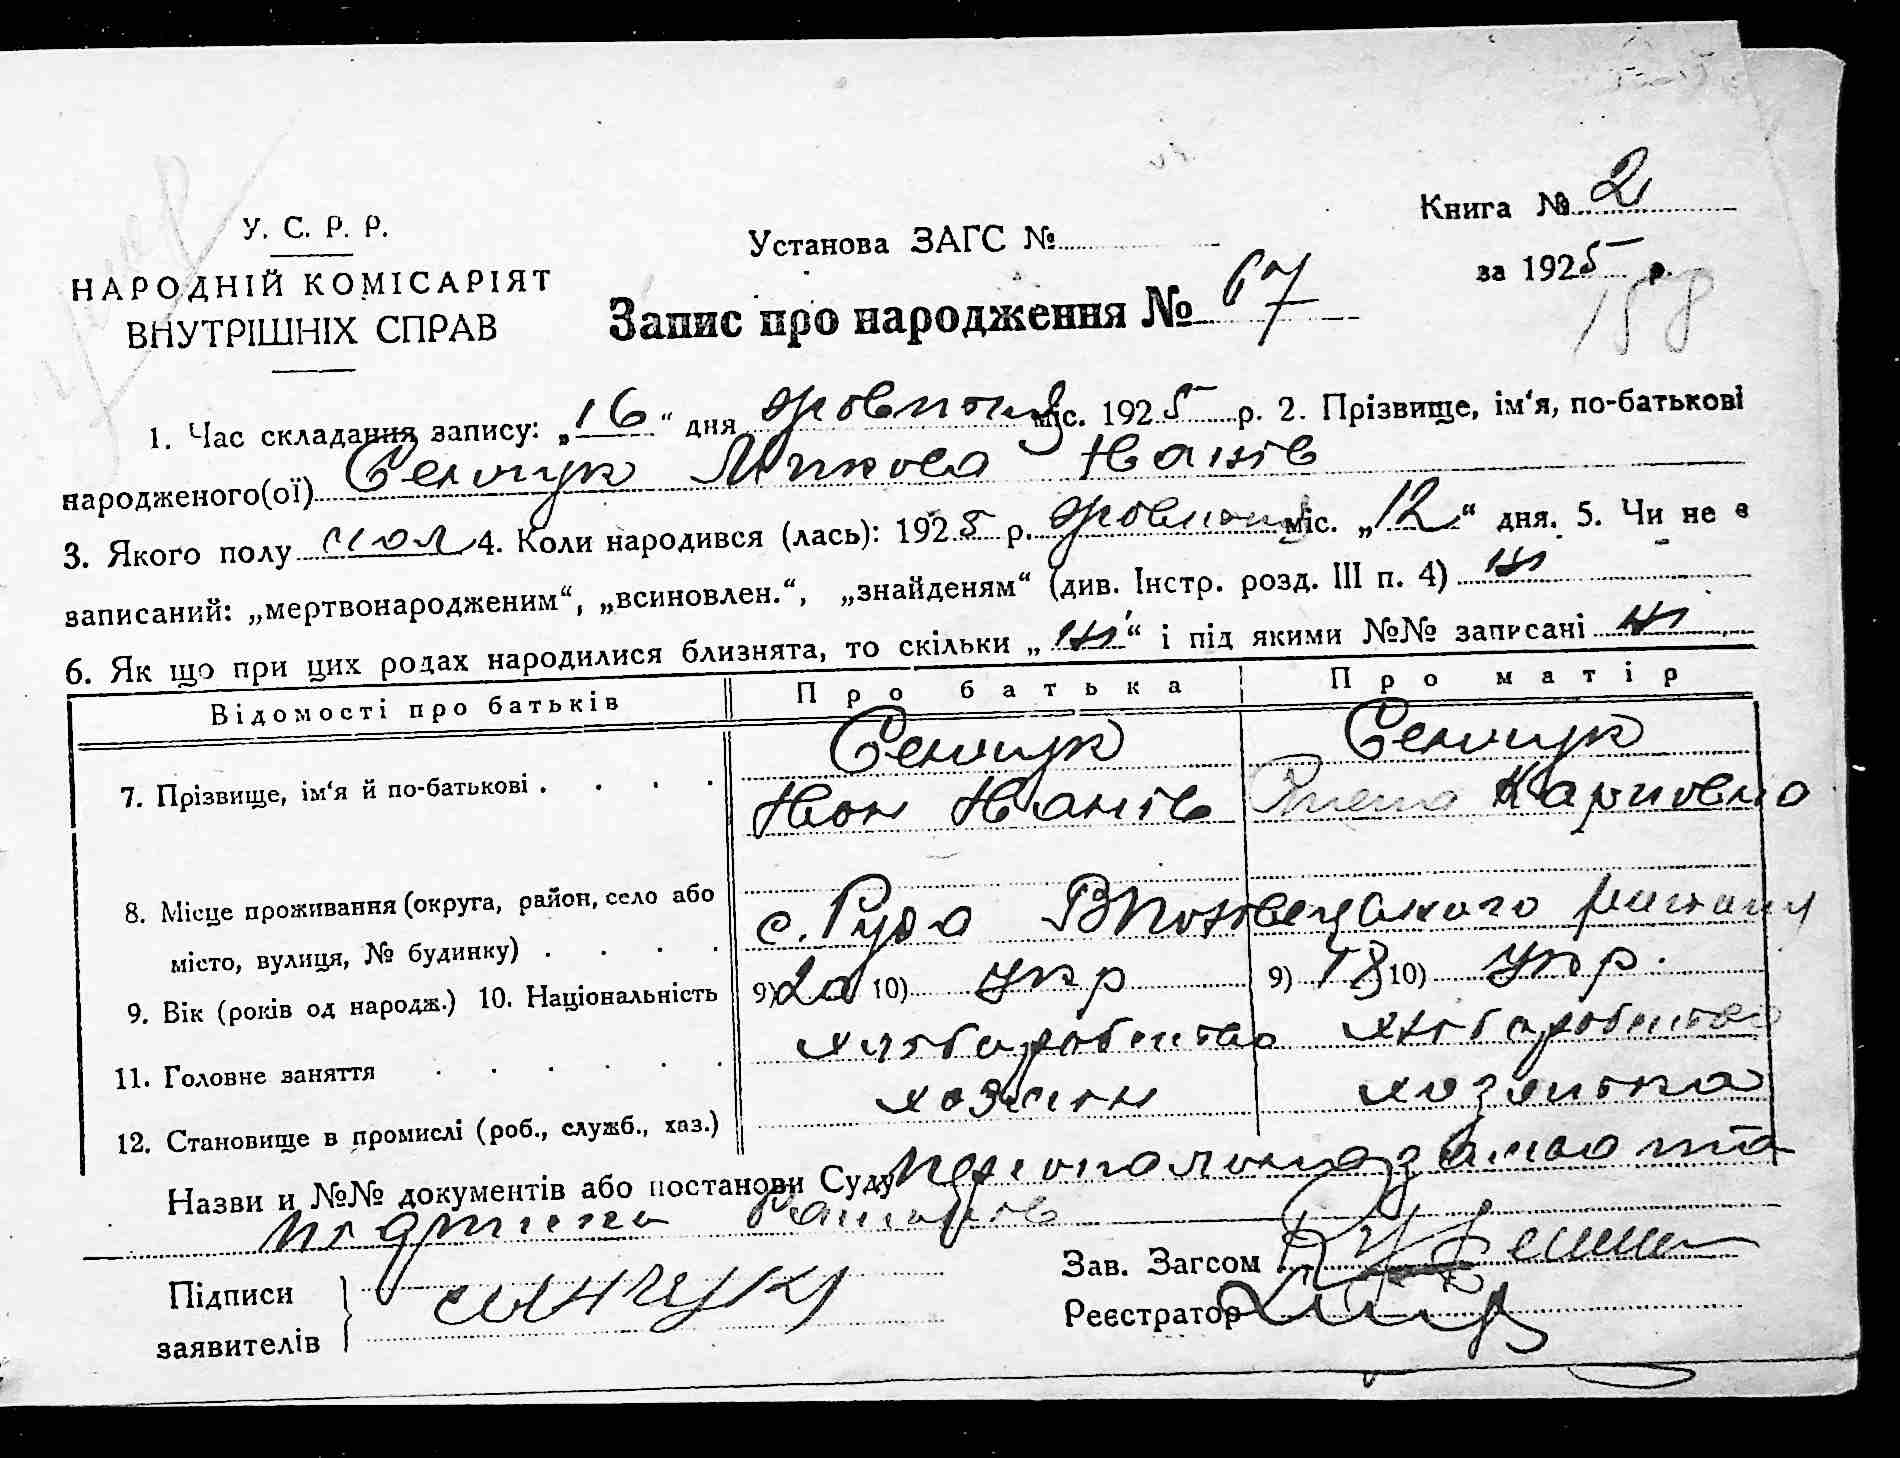 Книга № 2
У. С. Р. Р.
Установа ЗАГС №
за 1925 р.
НАРОДНІЙ КОМІСАРІЯТ
ВНУТРІШНІХ СПРАВ
Запис про народження № 67
158
1. Час складання запису: „16“ дня жовтня міс. 1925 р. 2. Прізвище, ім'я, по-батькові
народженого(ої) Сенчук Микола Іванів
3. Якого полу чол 4. Коли народився (лась): 1925 р. жовтня міс. „12“ дня. 5. Чи не є
записаний: „мертвонародженим“, „всиновлен.“, „знайденям“ (див. Інстр. розд. III п. 4) ні
6. Як що при цих родах народилися близнята, то скільки „ні“ і під якими №№ записані ні
Відомості про батьків Про батька Про матір
Сенчук Сенчук
7. Прізвище, ім'я й по-батькові . . . . Іван Іванів Карповна
8. Місце проживання (округа, район, село або
с. Руда
місто, вулиця, № будинку) . . . .
9. Вік (років од народж.) 10. Національність 9) 20 10) Укр 9) 18 10) Укр.
11. Головне заняття . . . . . . хліборобство хліборобство
хозяїн хозяйка
12. Становище в промислі (роб., служб., хаз.)
Назви и №№ документів або постанови Суду
Підписи
заявителів
Сынчук
Зав. Загсом
Реєстратор